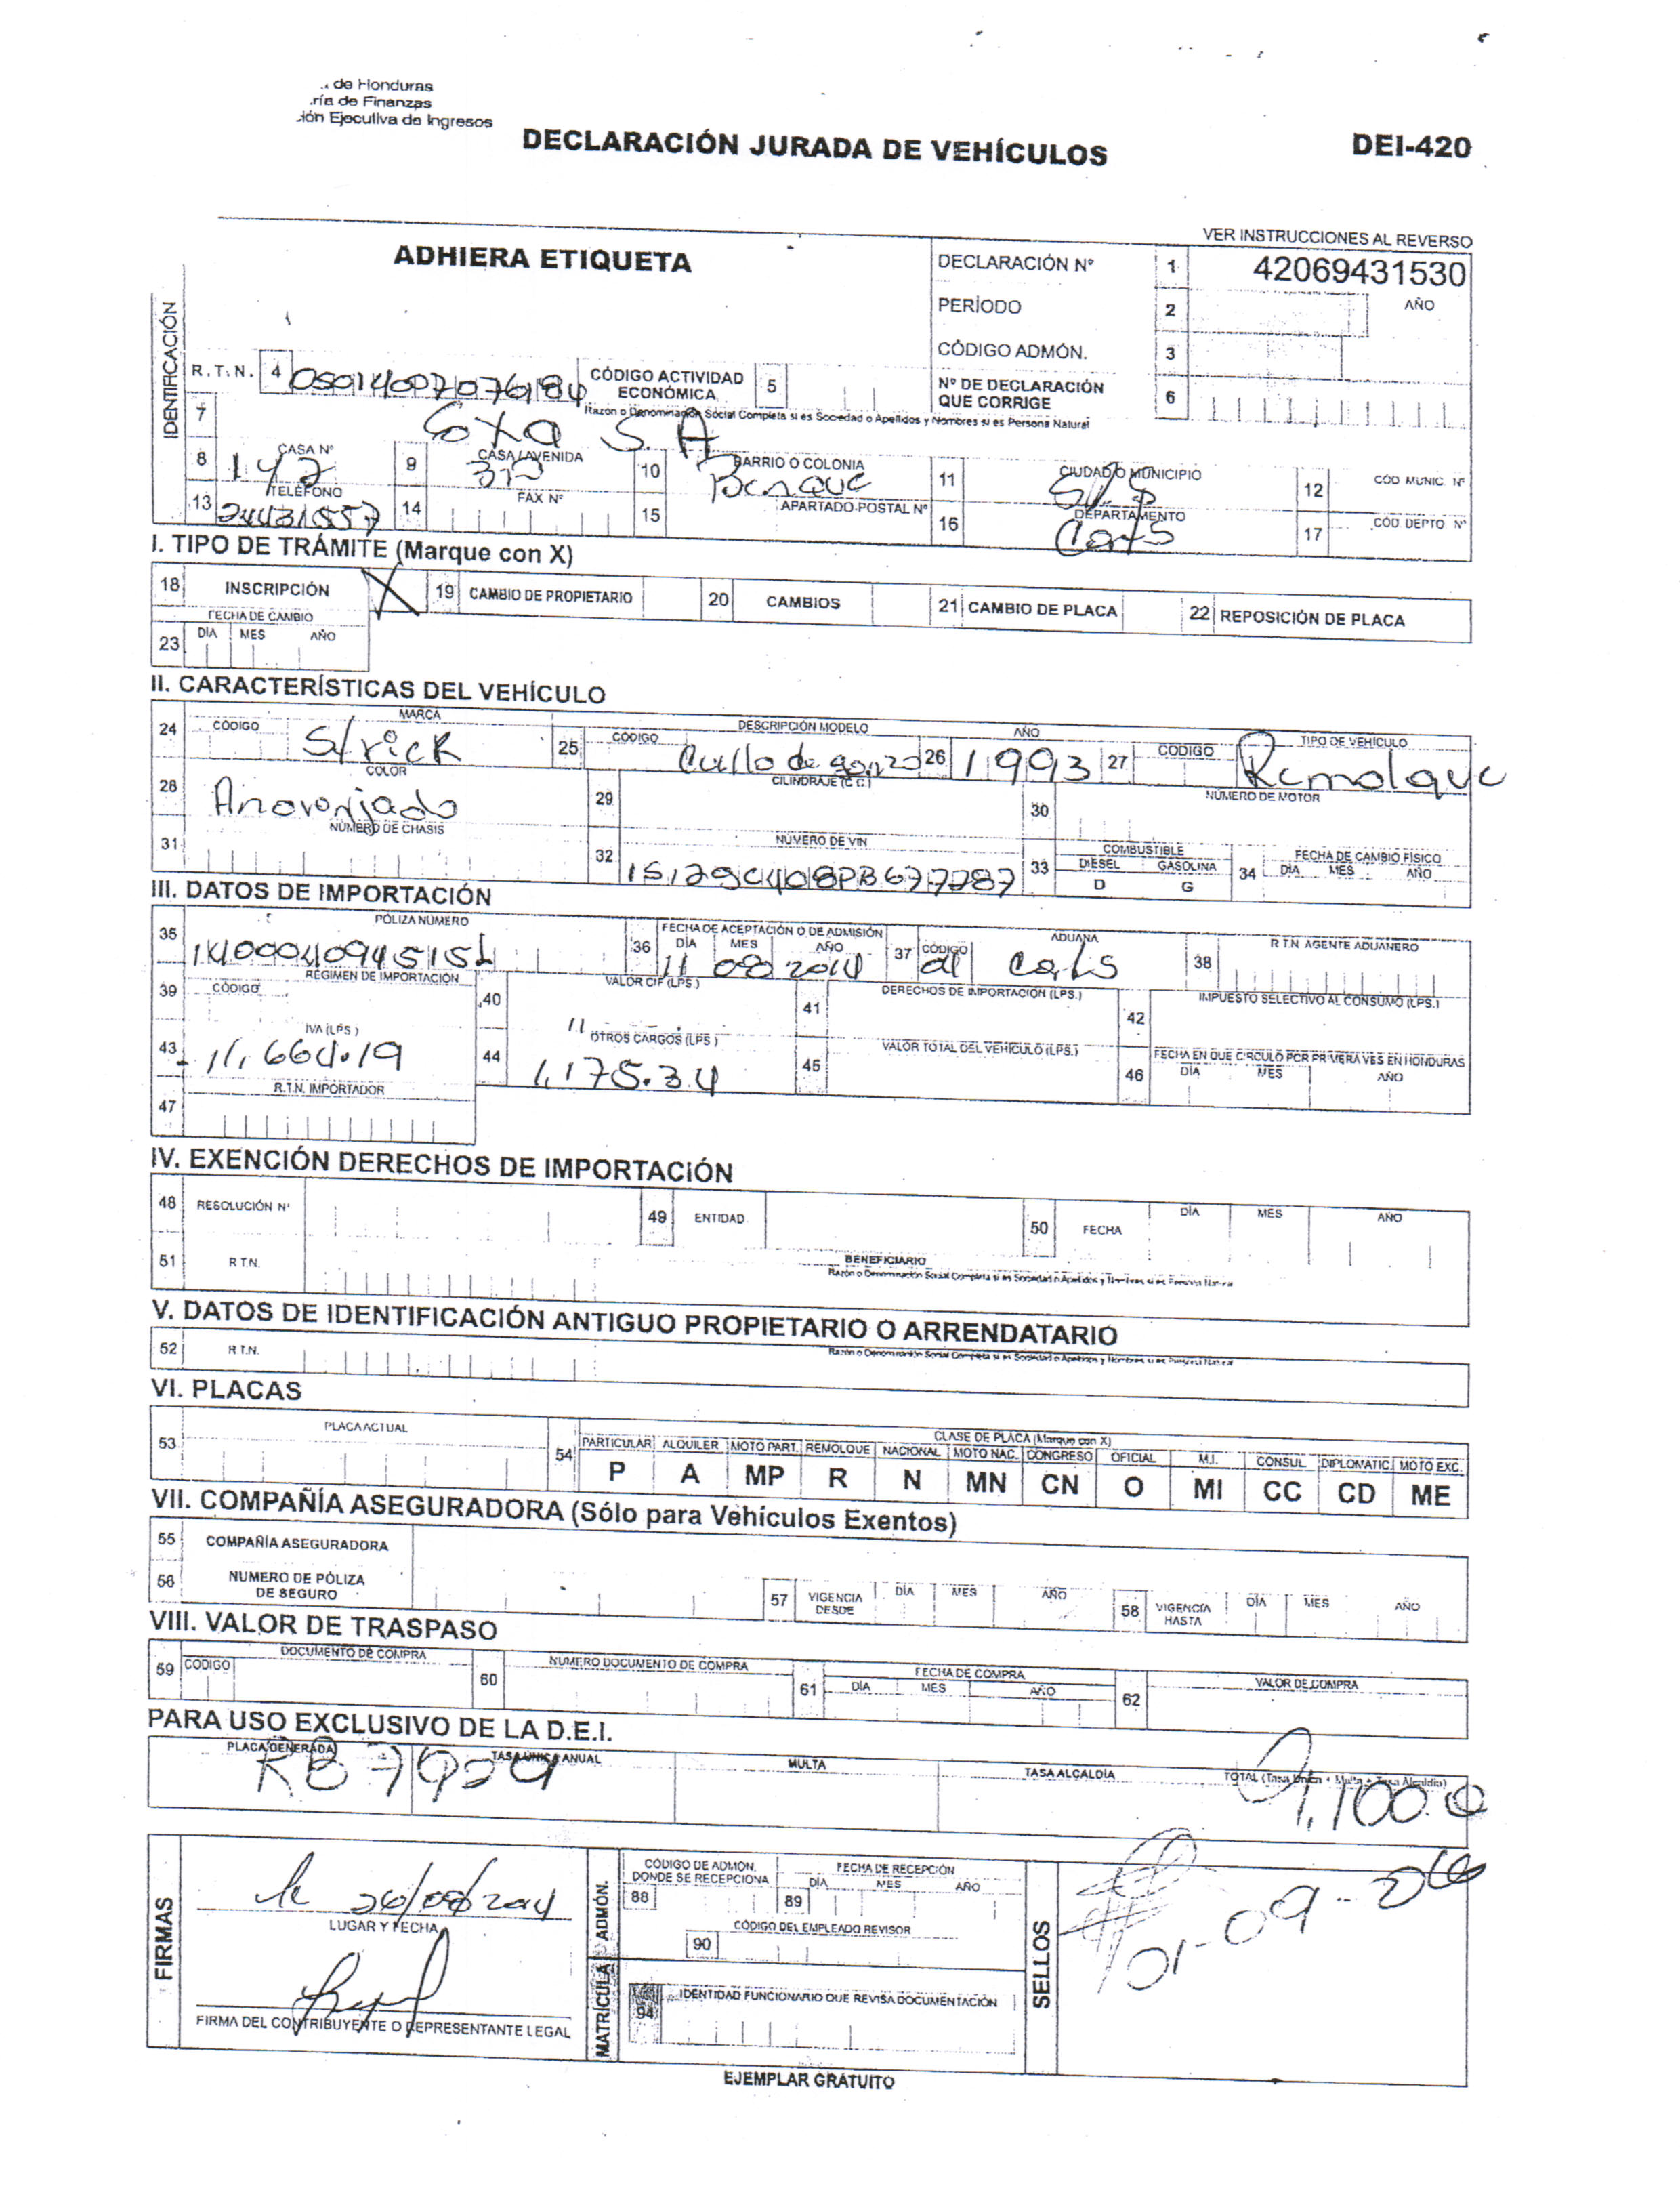 de Honduras
ría de Finanzas
ión Ejecutiva de Ingresos
DECLARACIÓN JURADA DE VEHÍCULOS DEI-420
VER INSTRUCCIONES AL REVERSO
ADHIERA ETIQUETA
DECLARACIÓN Nº 1 42069431530
PERÍODO 2 AÑO
CÓDIGO ADMÓN. 3
IDENTIFICACIÓN
R.T.N. 4 05014007076184 CÓDIGO ACTIVIDAD ECONÓMICA 5 Nº DE DECLARACIÓN QUE CORRIGE 6
Razon o Denominación Social Completa si es Sociedad o Apellidos y Nombres si es Persona Natural
7 S.A
8 CASA Nº 9 CASA/AVENIDA 10 BARRIO O COLONIA 11 CIUDAD O MUNICIPIO 12 COD MUNIC. Nº
13 TELÉFONO 24431557 14 FAX Nº 15 APARTADO POSTAL Nº 16 DEPARTAMENTO 17 COD DEPTO Nº
I. TIPO DE TRÁMITE (Marque con X)
18 INSCRIPCIÓN X 19 CAMBIO DE PROPIETARIO 20 CAMBIOS 21 CAMBIO DE PLACA 22 REPOSICIÓN DE PLACA
FECHA DE CAMBIO
23 DÍA MES AÑO
II. CARACTERÍSTICAS DEL VEHÍCULO
24 CÓDIGO MARCA 25 CODIGO DESCRIPCIÓN MODELO Cuello de 26 AÑO 1993 27 CODIGO TIPO DE VEHÍCULO Remolque
28 COLOR Anaranjado 29 CILINDRAJE (C.C.) 30 NÚMERO DE MOTOR
31 NÚMERO DE CHASIS 32 NÚMERO DE VIN 33 COMBUSTIBLE DIESEL GASOLINA D G 34 FECHA DE CAMBIO FÍSICO DÍA MES AÑO
III. DATOS DE IMPORTACIÓN
35 POLIZA NUMERO 36 FECHA DE ACEPTACIÓN O DE ADMISIÓN DÍA MES AÑO 11 08 2014 37 CODIGO ADUANA 38 R.T.N AGENTE ADUANERO
39 CÓDIGO RÉGIMEN DE IMPORTACIÓN 40 VALOR CIF (LPS.) 41 DERECHOS DE IMPORTACIÓN (LPS.) 42 IMPUESTO SELECTIVO AL CONSUMO (LPS.)
43 IVA (LPS) 11,664.19 44 OTROS CARGOS (LPS) 1,175.34 45 VALOR TOTAL DEL VEHÍCULO (LPS.) 46 FECHA EN QUE CIRCULÓ POR PRIMERA VES EN HONDURAS DÍA MES AÑO
47 R.T.N. IMPORTADOR
IV. EXENCIÓN DERECHOS DE IMPORTACIÓN
48 RESOLUCIÓN Nº 49 ENTIDAD 50 FECHA DÍA MES AÑO
51 R.T.N. BENEFICIARIO
Razón o Denominación Social Completa si es Sociedad o Apellidos y Nombres si es Persona Natural
V. DATOS DE IDENTIFICACIÓN ANTIGUO PROPIETARIO O ARRENDATARIO
52 R.T.N. Razón o Denominación Social Completa si es Sociedad o Apellidos y Nombres si es Persona Natural
VI. PLACAS
53 PLACA ACTUAL 54 CLASE DE PLACA (Marque con X)
PARTICULAR ALQUILER MOTO PART. REMOLQUE NACIONAL MOTO NAC. CONGRESO OFICIAL M.I. CONSUL DIPLOMATIC. MOTO EXC.
P A MP R N MN CN O MI CC CD ME
VII. COMPAÑÍA ASEGURADORA (Sólo para Vehículos Exentos)
55 COMPAÑÍA ASEGURADORA
56 NUMERO DE PÓLIZA DE SEGURO 57 VIGENCIA DESDE DÍA MES AÑO 58 VIGENCIA HASTA DÍA MES AÑO
VIII. VALOR DE TRASPASO
59 CODIGO DOCUMENTO DE COMPRA 60 NUMERO DOCUMENTO DE COMPRA 61 FECHA DE COMPRA DÍA MES AÑO 62 VALOR DE COMPRA
PARA USO EXCLUSIVO DE LA D.E.I.
PLACA GENERADA TASA UNICA ANUAL MULTA TASA ALCALDÍA TOTAL (Tasa Unica + Multa + Tasa Alcaldía)
FIRMAS
26/08/2014
LUGAR Y FECHA
FIRMA DEL CONTRIBUYENTE O REPRESENTANTE LEGAL
MATRÍCULA ADMÓN.
CÓDIGO DE ADMON. DONDE SE RECEPCIONA 88 FECHA DE RECEPCIÓN 89 DÍA MES AÑO
CÓDIGO DEL EMPLEADO REVISOR
90
94 IDENTIDAD FUNCIONARIO QUE REVISA DOCUMENTACIÓN
SELLOS
EJEMPLAR GRATUITO